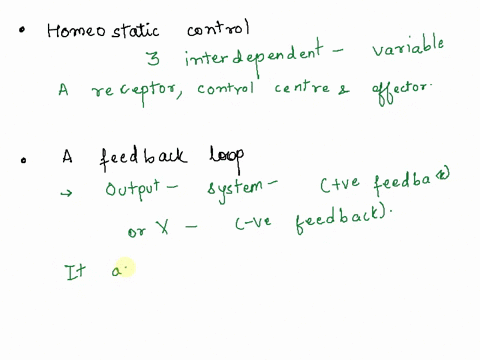 • Homeostatic control
3 interdependent - variable
A receptor, control centre & effector.
• A feedback loop
→ Output - system - (+ve feedback)
or X - (-ve feedback).
It a